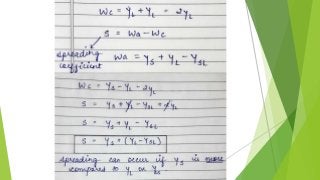 Wc = γL + γL = 2γL
S = Wa - Wc
spreading
coefficient
Wa = γS + γL - γSL
Wc = γS - γL - 2γL
S = γS + γL - γSL
S = γS + (γL - γSL)
spreading can occur if γS is more
compared to γL or